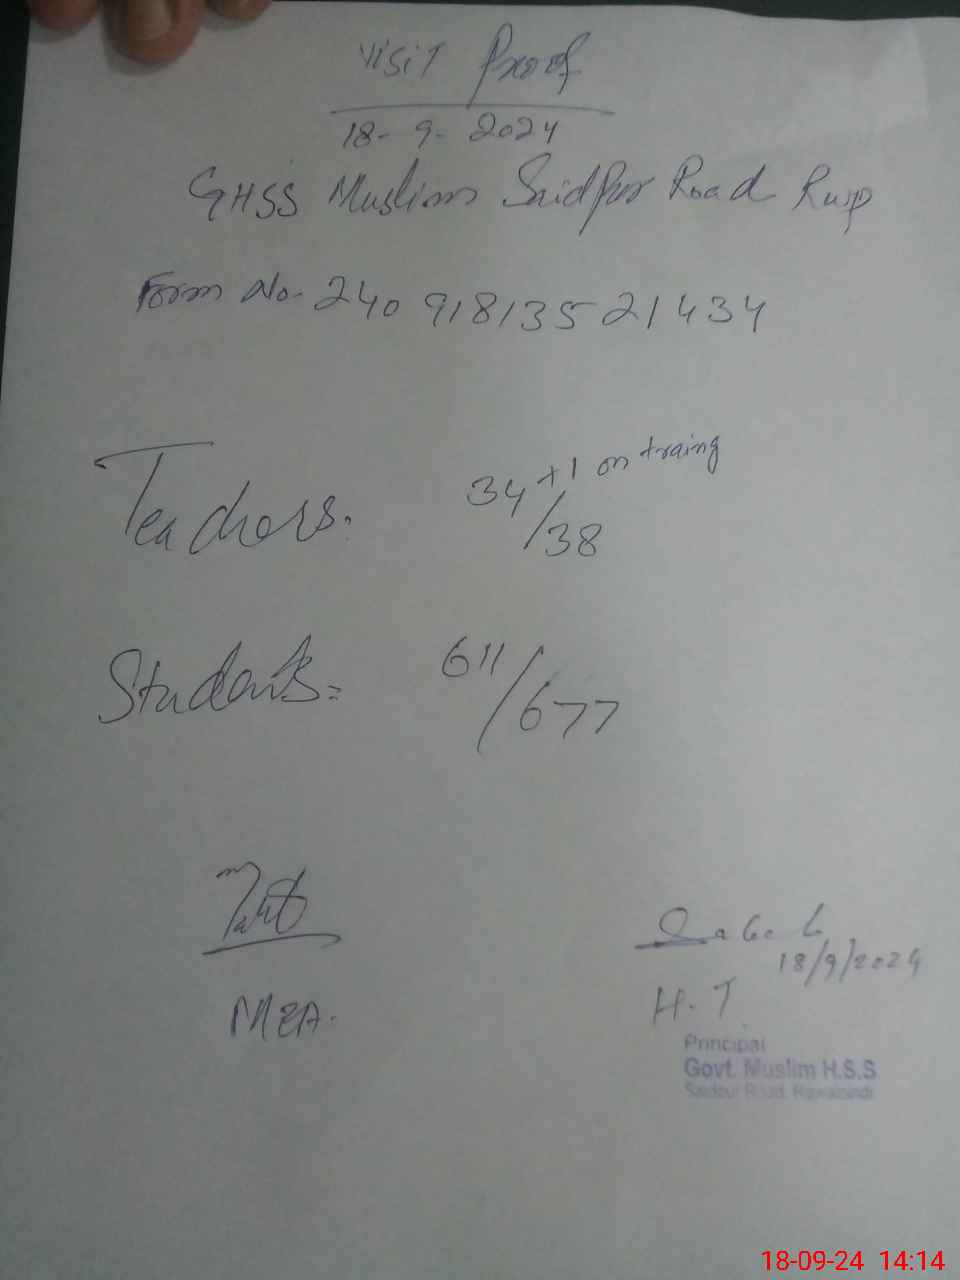 Visit Proof
18-9-2024
GHSS Muslim Saidpur Road Rwp
Form No. 240 918135 21434
Teachers. 34+1 on traing
/38
Students= 611/677
MEA.
18/9/2024
H.T
Principal
Govt. Muslim H.S.S
Saidpur Road, Rawalpindi
18-09-24 14:14